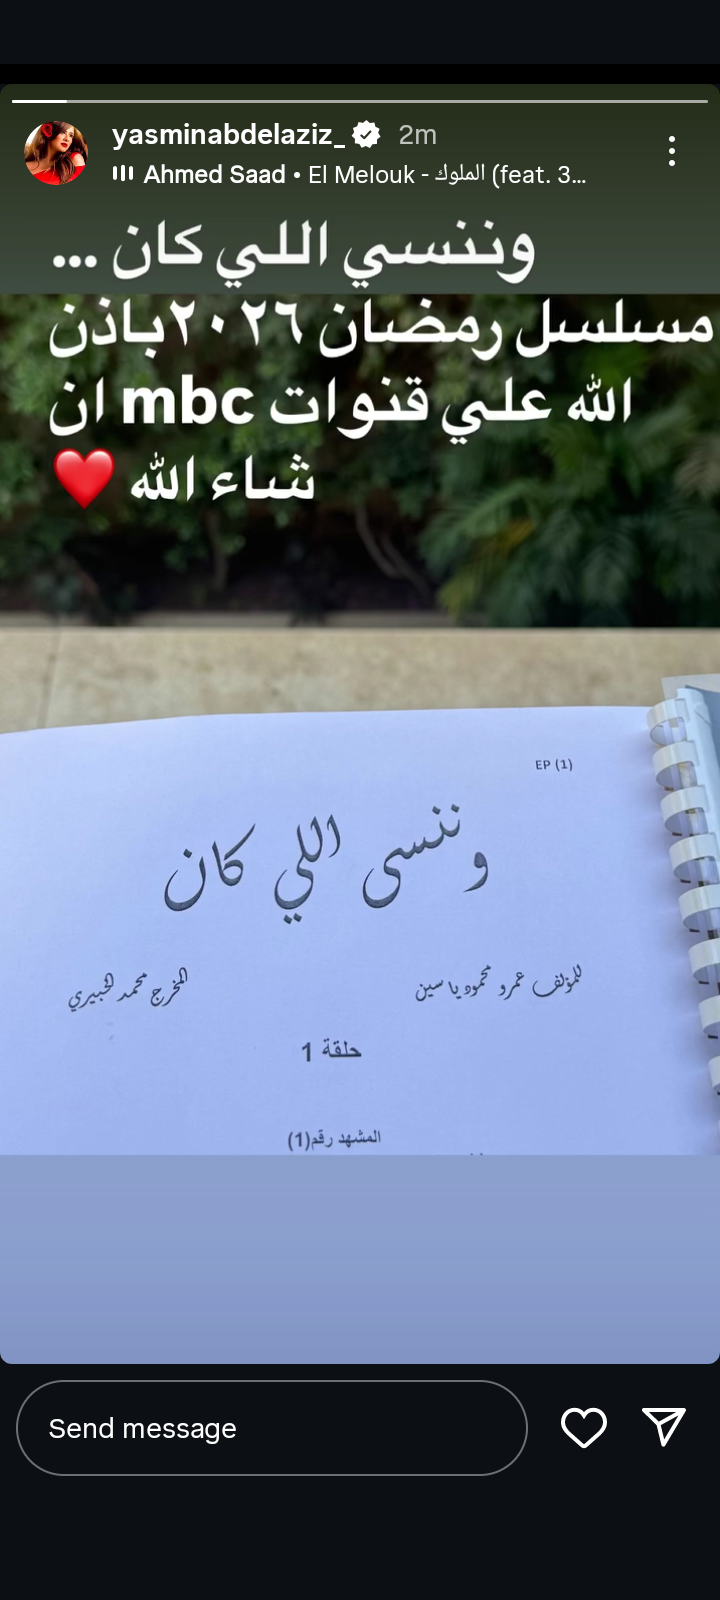 yasminabdelaziz_ 2m
Ahmed Saad • El Melouk - الملوك (feat. 3...
وننسي اللي كان ...
مسلسل رمضان ٢٠٢٦باذن
الله علي قنوات mbc ان
شاء الله ❤️
EP (1)
وننسى اللي كان
للمؤلف عمرو محمود ياسين
المخرج محمد الخبيري
حلقة 1
المشهد رقم(1)
Send message